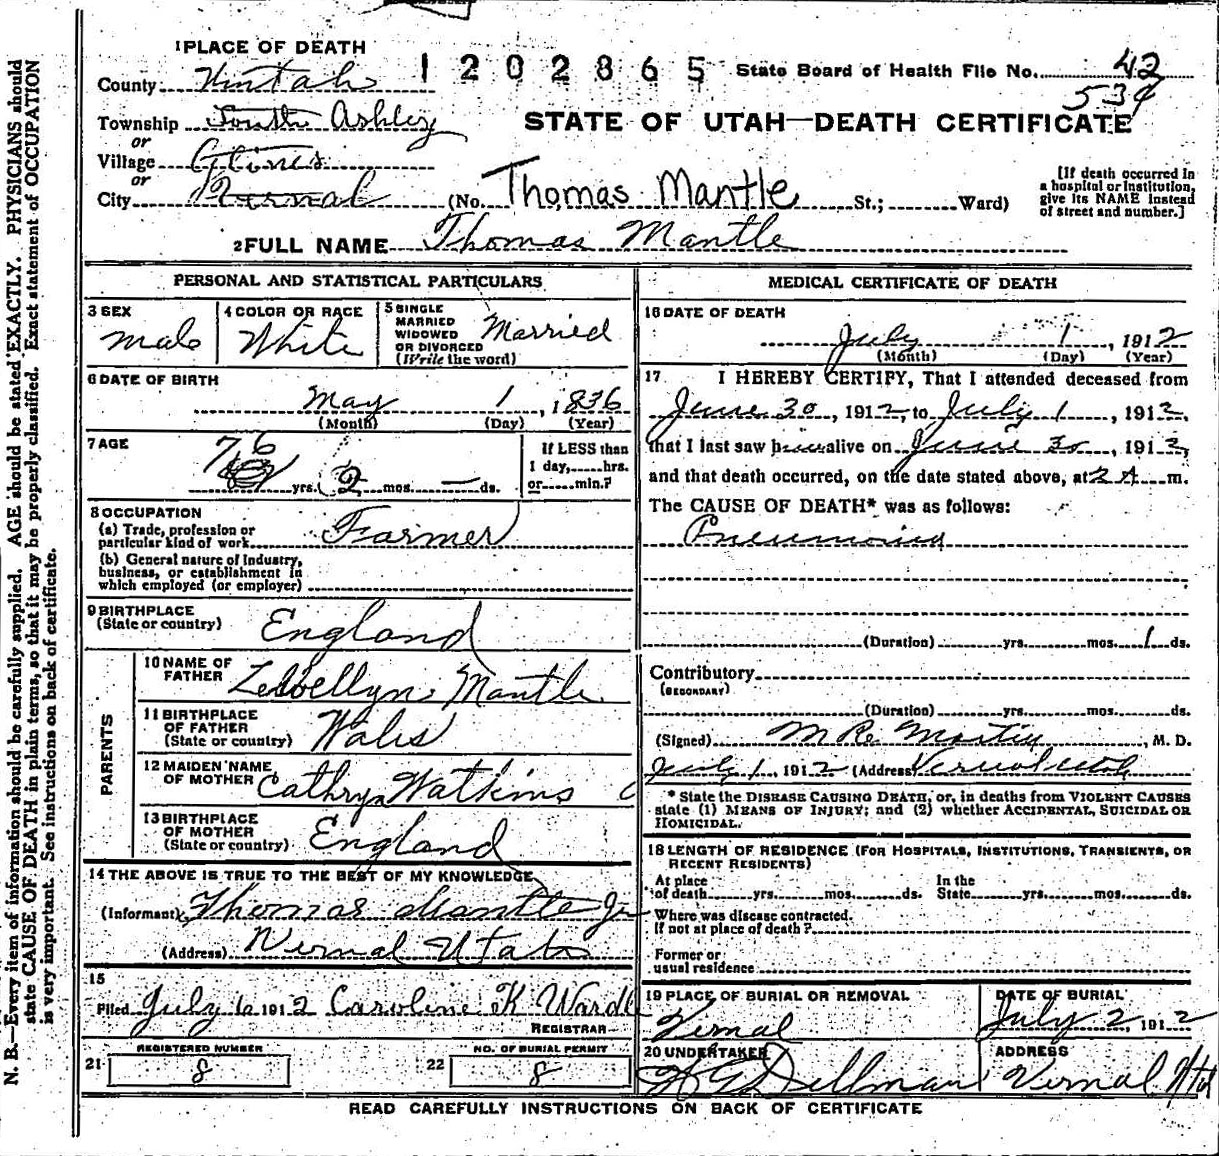 1 PLACE OF DEATH
1202865
State Board of Health File No. 42
County Uintah
534
Township South Ashley
STATE OF UTAH—DEATH CERTIFICATE
or
Village Glines
or
City Vernal (No. Thomas Mantle St.; Ward)
[If death occurred in
a hospital or institution,
give its NAME instead
of street and number.]
2 FULL NAME Thomas Mantle
PERSONAL AND STATISTICAL PARTICULARS
3 SEX
male
4 COLOR OR RACE
White
5 SINGLE
MARRIED
WIDOWED
OR DIVORCED
(Write the word)
Married
6 DATE OF BIRTH
May 1, 1836
(Month) (Day) (Year)
7 AGE
76 yrs. 2 mos. — ds.
If LESS than
1 day, hrs.
or min.?
8 OCCUPATION
(a) Trade, profession or
particular kind of work Farmer
(b) General nature of industry,
business, or establishment in
which employed (or employer)
9 BIRTHPLACE
(State or country) England
PARENTS
10 NAME OF
FATHER Lewellyn Mantle
11 BIRTHPLACE
OF FATHER
(State or country) Wales
12 MAIDEN NAME
OF MOTHER Cathryn Watkins
13 BIRTHPLACE
OF MOTHER
(State or country) England
14 THE ABOVE IS TRUE TO THE BEST OF MY KNOWLEDGE
(Informant) Thomas Mantle Jr
(Address) Vernal Utah
15
Filed July 6 1912 Caroline K Wardl
REGISTRAR
21 REGISTERED NUMBER
8
22 NO. OF BURIAL PERMIT
8
MEDICAL CERTIFICATE OF DEATH
16 DATE OF DEATH
July 1, 1912
(Month) (Day) (Year)
17 I HEREBY CERTIFY, That I attended deceased from
June 30, 1912, to July 1, 1912,
that I last saw him alive on June 30, 1912,
and that death occurred, on the date stated above, at 2 A m.
The CAUSE OF DEATH* was as follows:
Pneumonia
(Duration) yrs. mos. 1 ds.
Contributory
(SECONDARY)
(Duration) yrs. mos. ds.
(Signed) Martin, M. D.
July 1, 1912 (Address) Vernal Utah
* State the DISEASE CAUSING DEATH, or, in deaths from VIOLENT CAUSES
state (1) MEANS OF INJURY; and (2) whether ACCIDENTAL, SUICIDAL OR
HOMICIDAL.
18 LENGTH OF RESIDENCE (FOR HOSPITALS, INSTITUTIONS, TRANSIENTS, OR
RECENT RESIDENTS)
At place
of death yrs. mos. ds.
In the
State yrs. mos. ds.
Where was disease contracted.
If not at place of death?
Former or
usual residence
19 PLACE OF BURIAL OR REMOVAL
Vernal
DATE OF BURIAL
July 2, 1912
20 UNDERTAKER
Dillman
ADDRESS
Vernal Utah
READ CAREFULLY INSTRUCTIONS ON BACK OF CERTIFICATE
N. B.—Every item of information should be carefully supplied. AGE should be stated EXACTLY. PHYSICIANS should
state CAUSE OF DEATH in plain terms, so that it may be properly classified. Exact statement of OCCUPATION
is very important. See instructions on back of certificate.